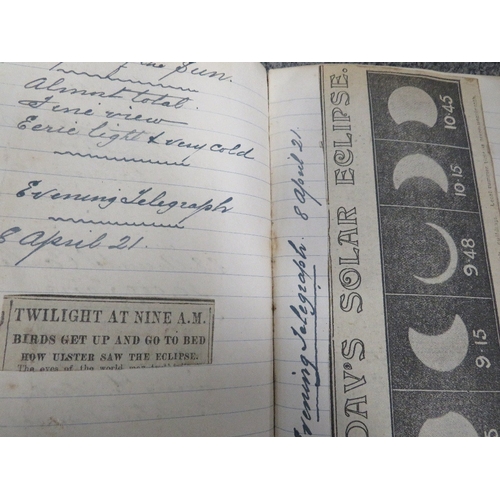 of the Sun.
Almost total.
Fine view
Eerie light & very cold
Evening Telegraph
8 April 21.
TWILIGHT AT NINE A.M.
BIRDS GET UP AND GO TO BED
HOW ULSTER SAW THE ECLIPSE.
The eyes of the world
Evening Telegraph. 8 April 21.
DAY'S SOLAR ECLIPSE.
10·45
10·15
9·48
9·15